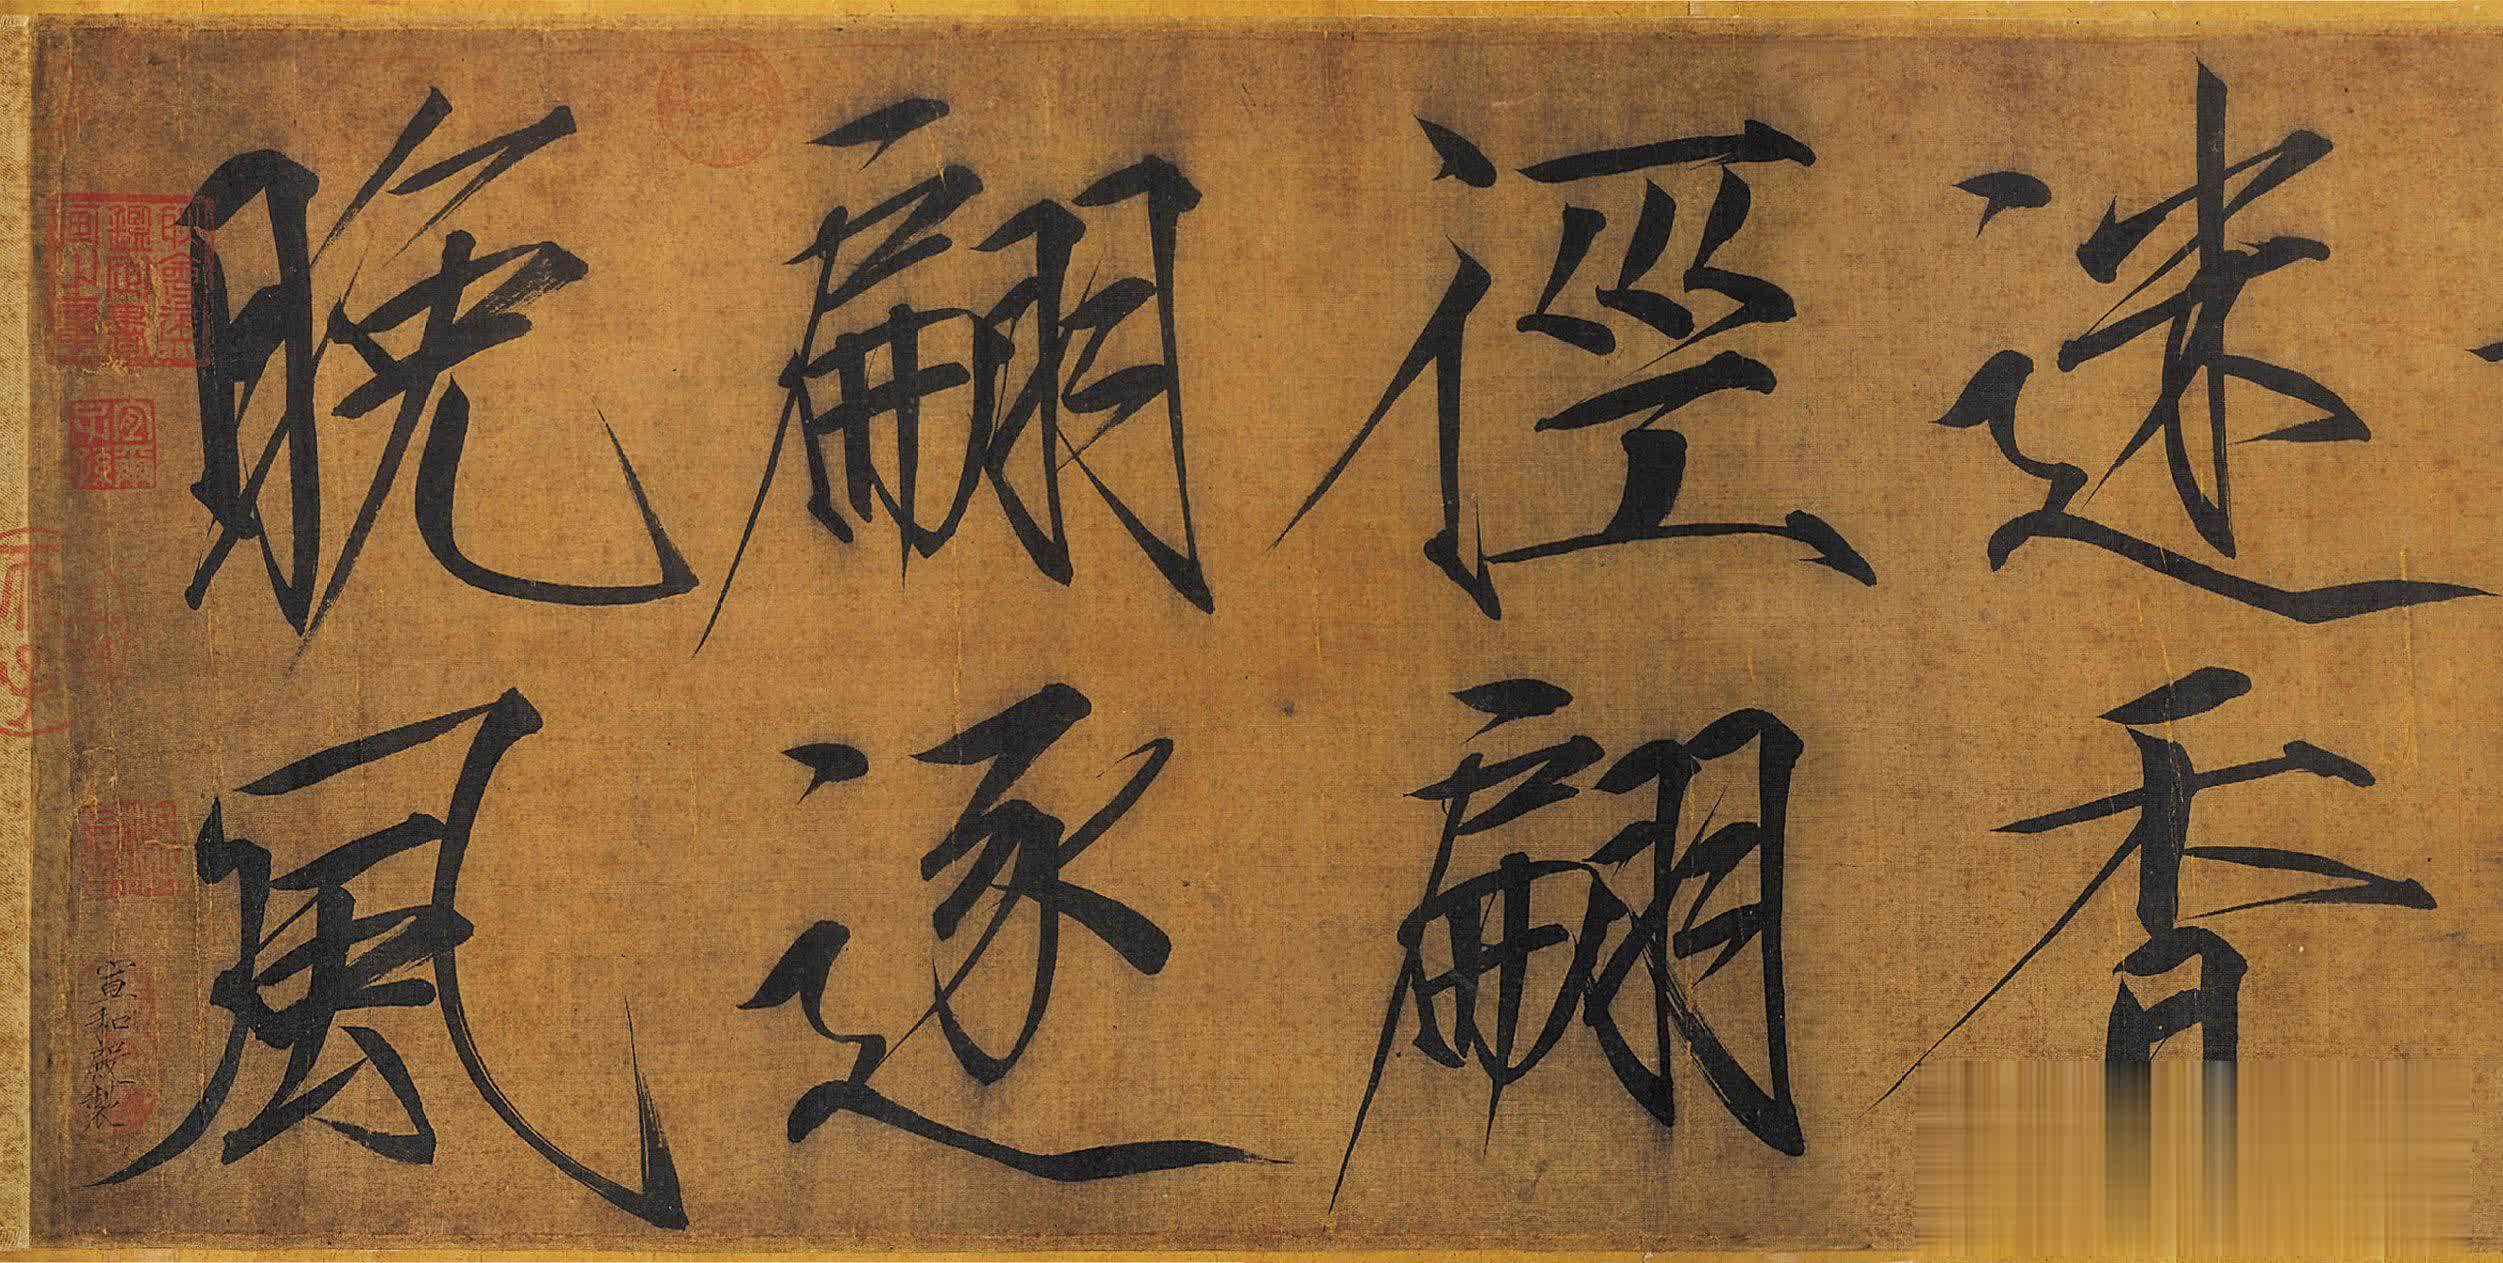 迷香
徑翩
翩逐
晚風
宣和殿製